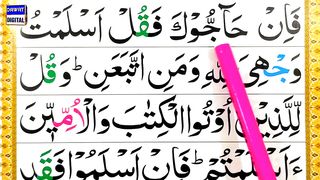 DAWAT
DIGITAL
فَاِنْ حَآجُّوْكَ فَقُلْ اَسْلَمْتُ
وَجْهِیَ لِلّٰهِ وَمَنِ اتَّبَعَنِ ؕ وَقُلْ
لِّلَّذِیْنَ اُوْتُوا الْكِتٰبَ وَالْاُمِّیّٖنَ
ءَاَسْلَمْتُمْ ؕ فَاِنْ اَسْلَمُوْا فَقَدِ